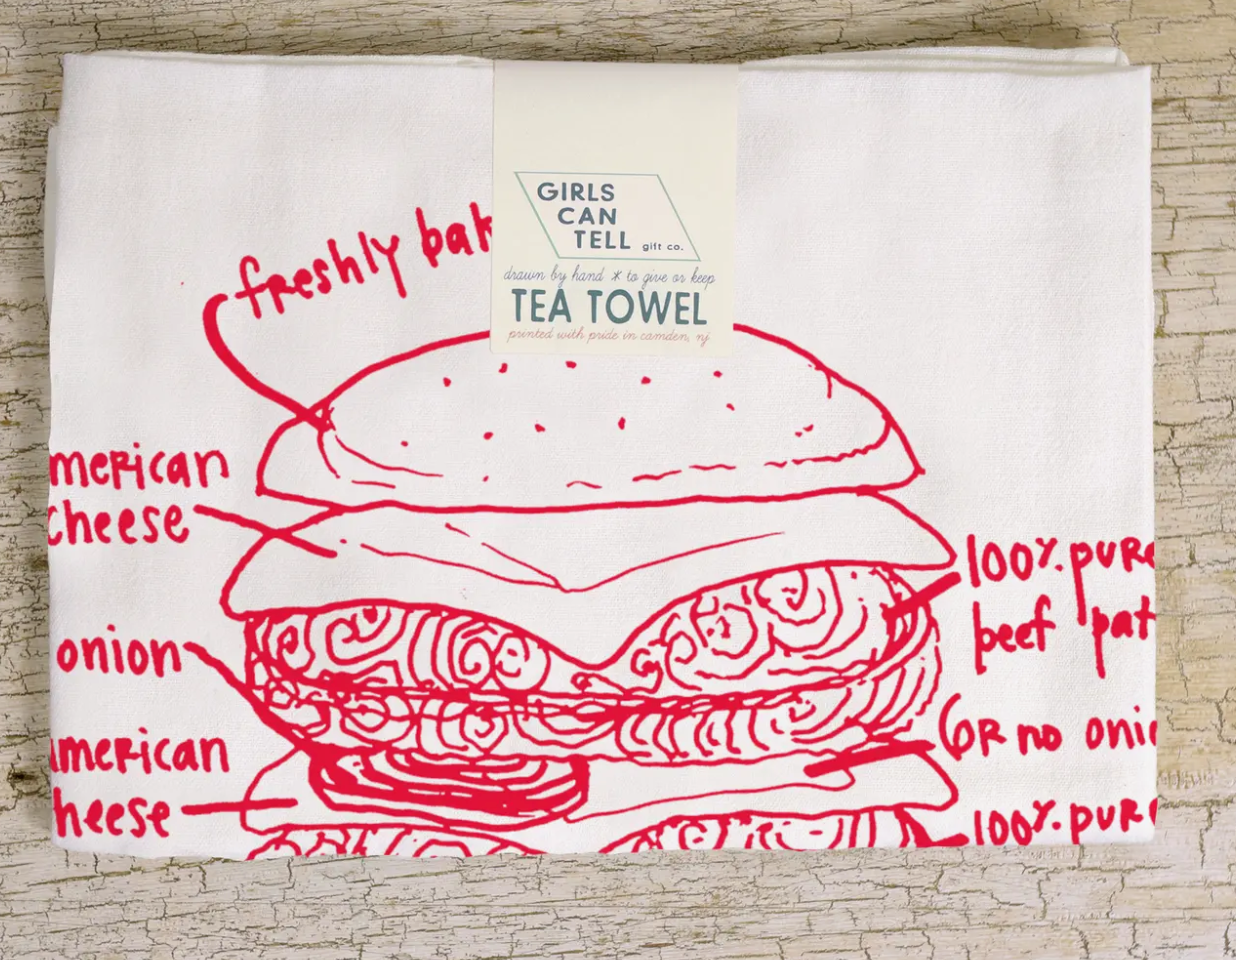 GIRLS
CAN
TELL gift co.
drawn by hand * to give or keep
TEA TOWEL
printed with pride in camden, nj
freshly bak
merican
cheese
onion
merican
heese
100% pure
beef pat
GR no oni
100% pur